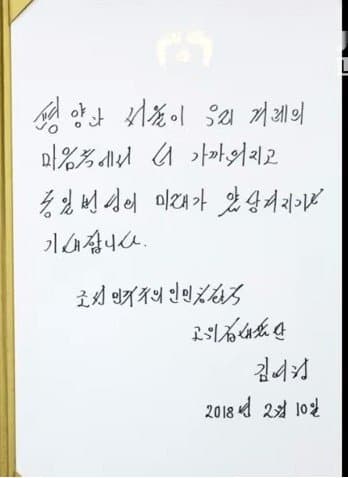 평양과 서울이 우리 겨레의
마음속에서 더 가까워지고
통일번영의 미래가 앞당겨지기를
기대합니다.
조선민주주의인민공화국
고위급대표단
김여정
2018년 2월 10일